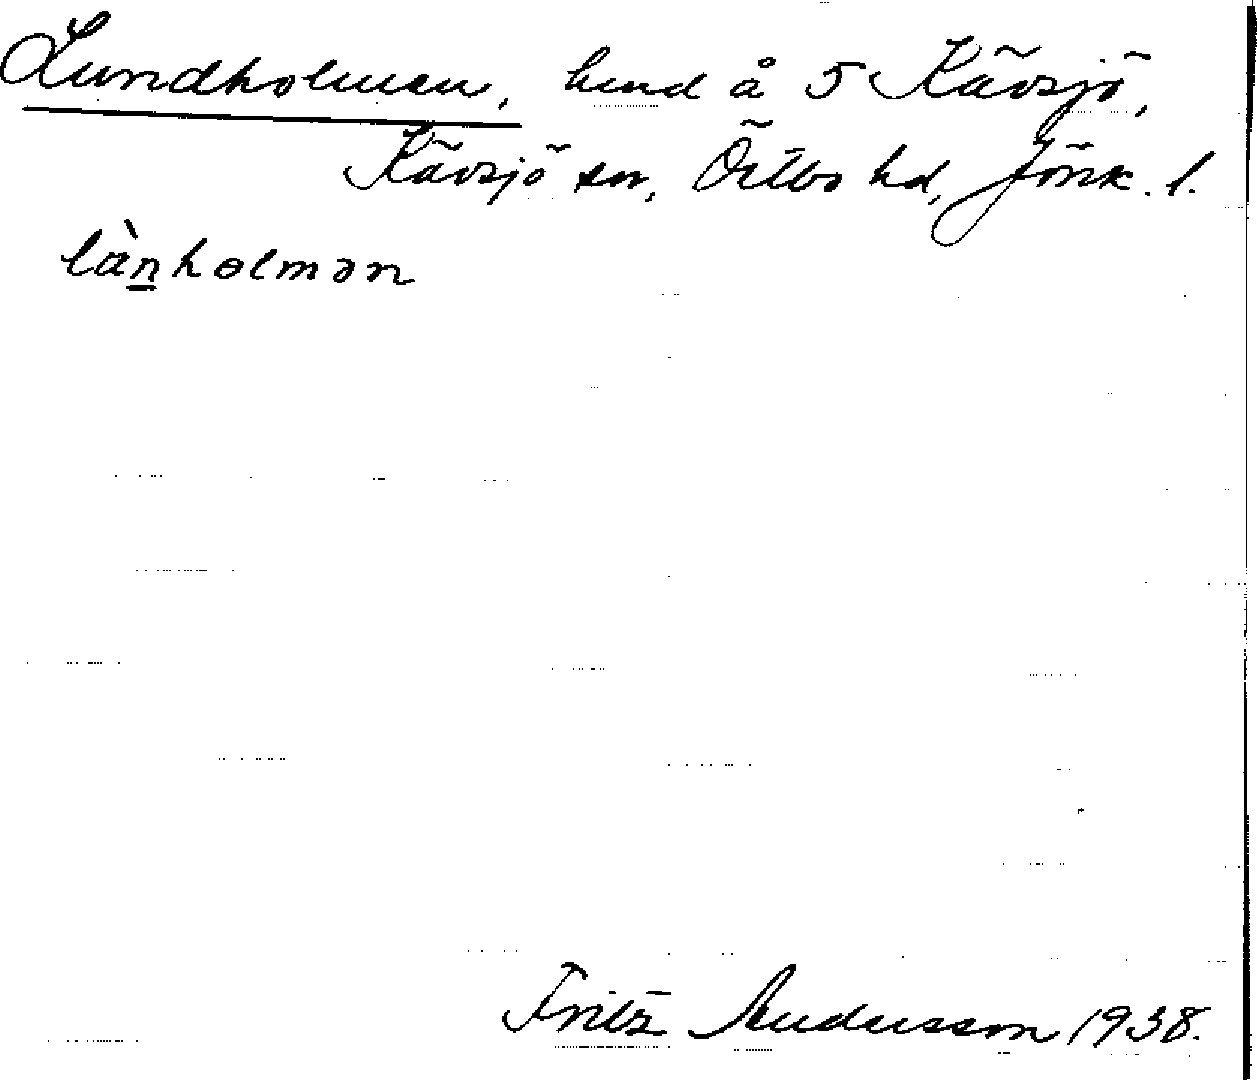 Lundholmen, hmd å 5 Kävsjö,
Kävsjö sn, Östbo hd, Jönk. l.
lànholmən
Fritz Andersson 1938.